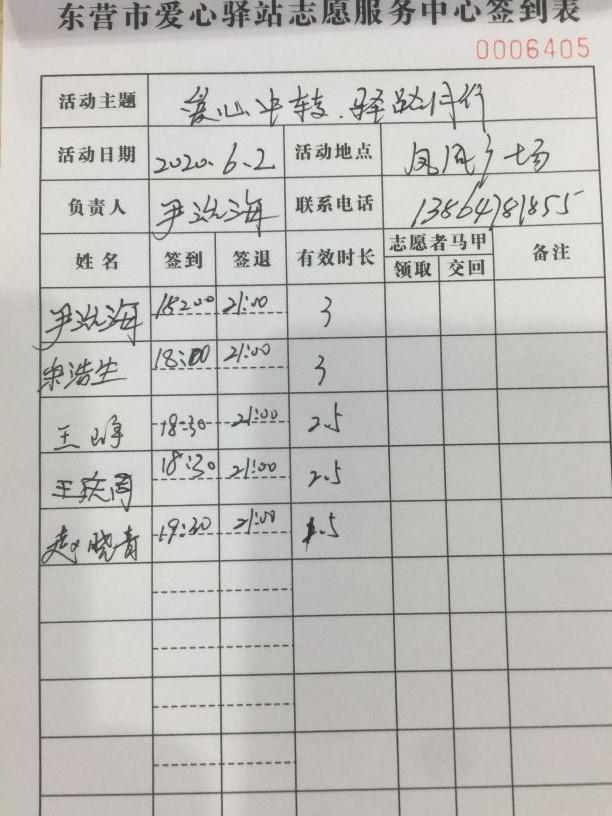 东营市爱心驿站志愿服务中心签到表
0006405
活动主题 爱心中转.驿站同行
活动日期 2020.6.2 活动地点 凤凰广场
负责人 尹沿海 联系电话 13864781855
姓名 签到 签退 有效时长 志愿者马甲 备注
领取 交回
尹沿海 18:00 21:00 3
宋浩生 18:00 21:00 3
王峥 18:30 21:00 2.5
18:30 21:00 2.5
赵晓青 19:30 21:00 1.5